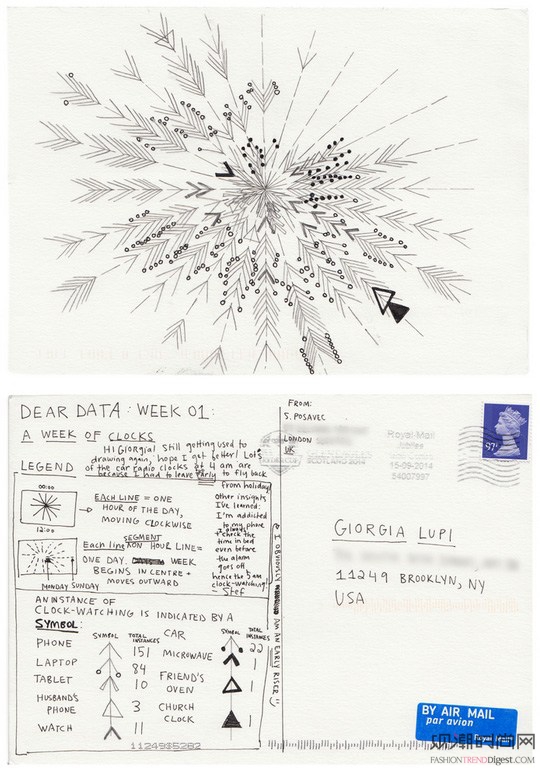 DEAR DATA: WEEK 01:
A WEEK OF CLOCKS
Hi Giorgia! Still getting used to
drawing again, hope I get better! Lots
of the car radio clocks at 4 am are
because I had to leave early to fly back
from holiday.
other insights
I've learned:
I'm addicted
to my phone
+ always
check the
time in bed
even before
the alarm
goes off
hence the 5am
clock-watching!
- Stef
& I OBVIOUSLY
AM AN EARLY RISER
LEGEND
00:00
12:00
EACH LINE = ONE
HOUR OF THE DAY,
MOVING CLOCKWISE
SEGMENT
Each line ON HOUR LINE =
ONE DAY. WEEK
BEGINS IN CENTRE +
MOVES OUTWARD
MONDAY SUNDAY
AN INSTANCE OF
CLOCK-WATCHING IS INDICATED BY A
SYMBOL:
SYMBOL TOTAL INSTANCES
PHONE 151
LAPTOP 84
TABLET 10
HUSBAND'S PHONE 3
WATCH 11
SYMBOL TOTAL INSTANCES
CAR 22
MICROWAVE 1
FRIEND'S OVEN 1
CHURCH CLOCK 1
FROM:
S. POSAVEC
LONDON
UK
Royal Mail
15-09-2014
GIORGIA LUPI
11249 BROOKLYN, NY
USA
BY AIR MAIL
par avion
Royal Mail
观潮时尚网
FASHIONTRENDDIGEST.COM